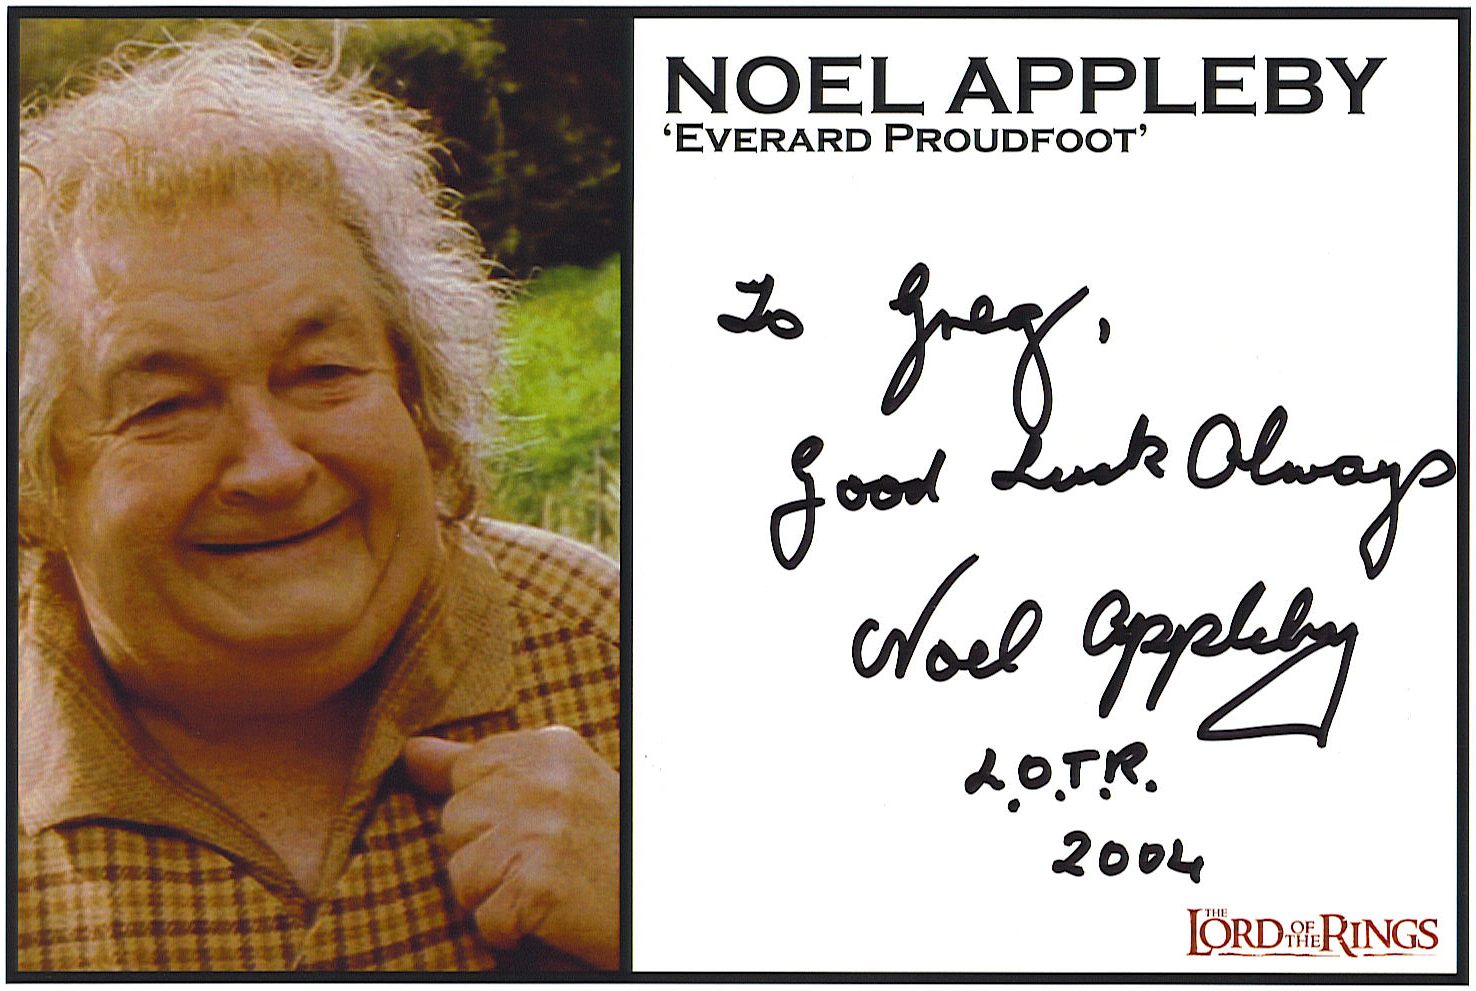 NOEL APPLEBY
‘EVERARD PROUDFOOT’
To Greg,
Good Luck Always
Noel Appleby
L.O.T.R.
2004
THE LORD OF THE RINGS